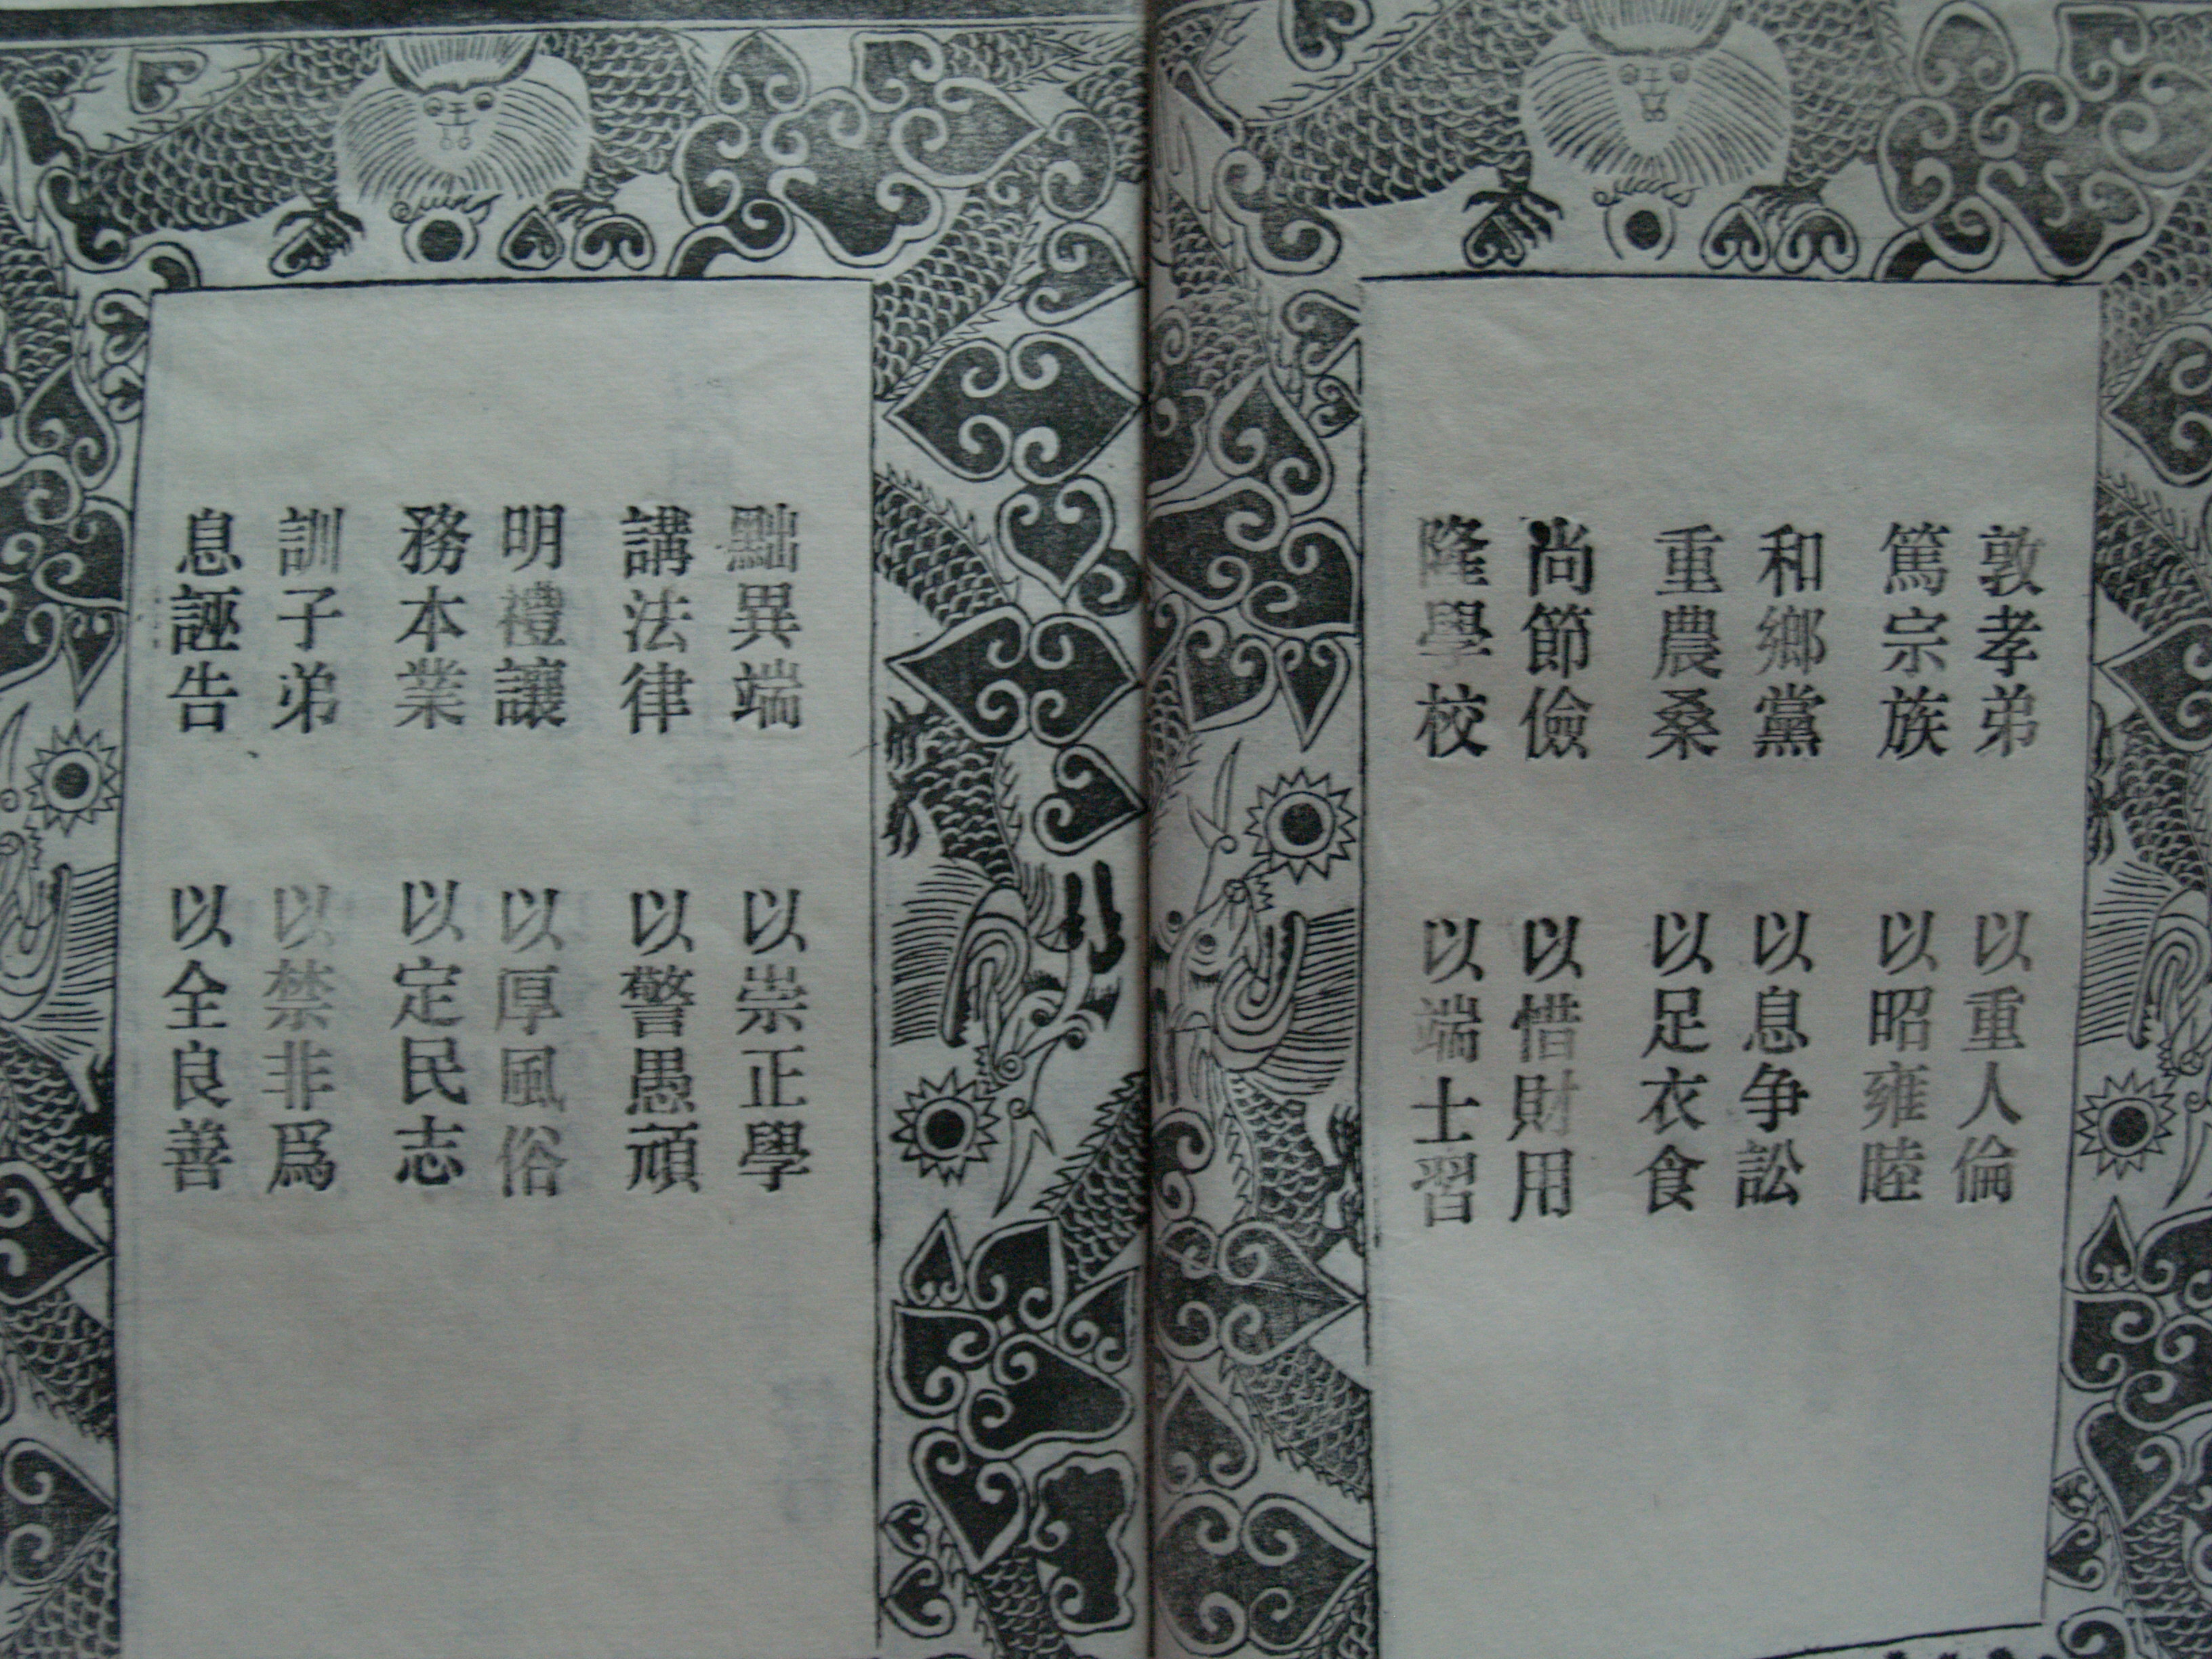 敦孝弟 以重人倫
篤宗族 以昭雍睦
和鄉黨 以息争訟
重農桑 以足衣食
尚節儉 以惜財用
隆學校 以端士習
黜異端 以崇正學
講法律 以警愚頑
明禮讓 以厚風俗
務本業 以定民志
訓子弟 以禁非爲
息誣告 以全良善